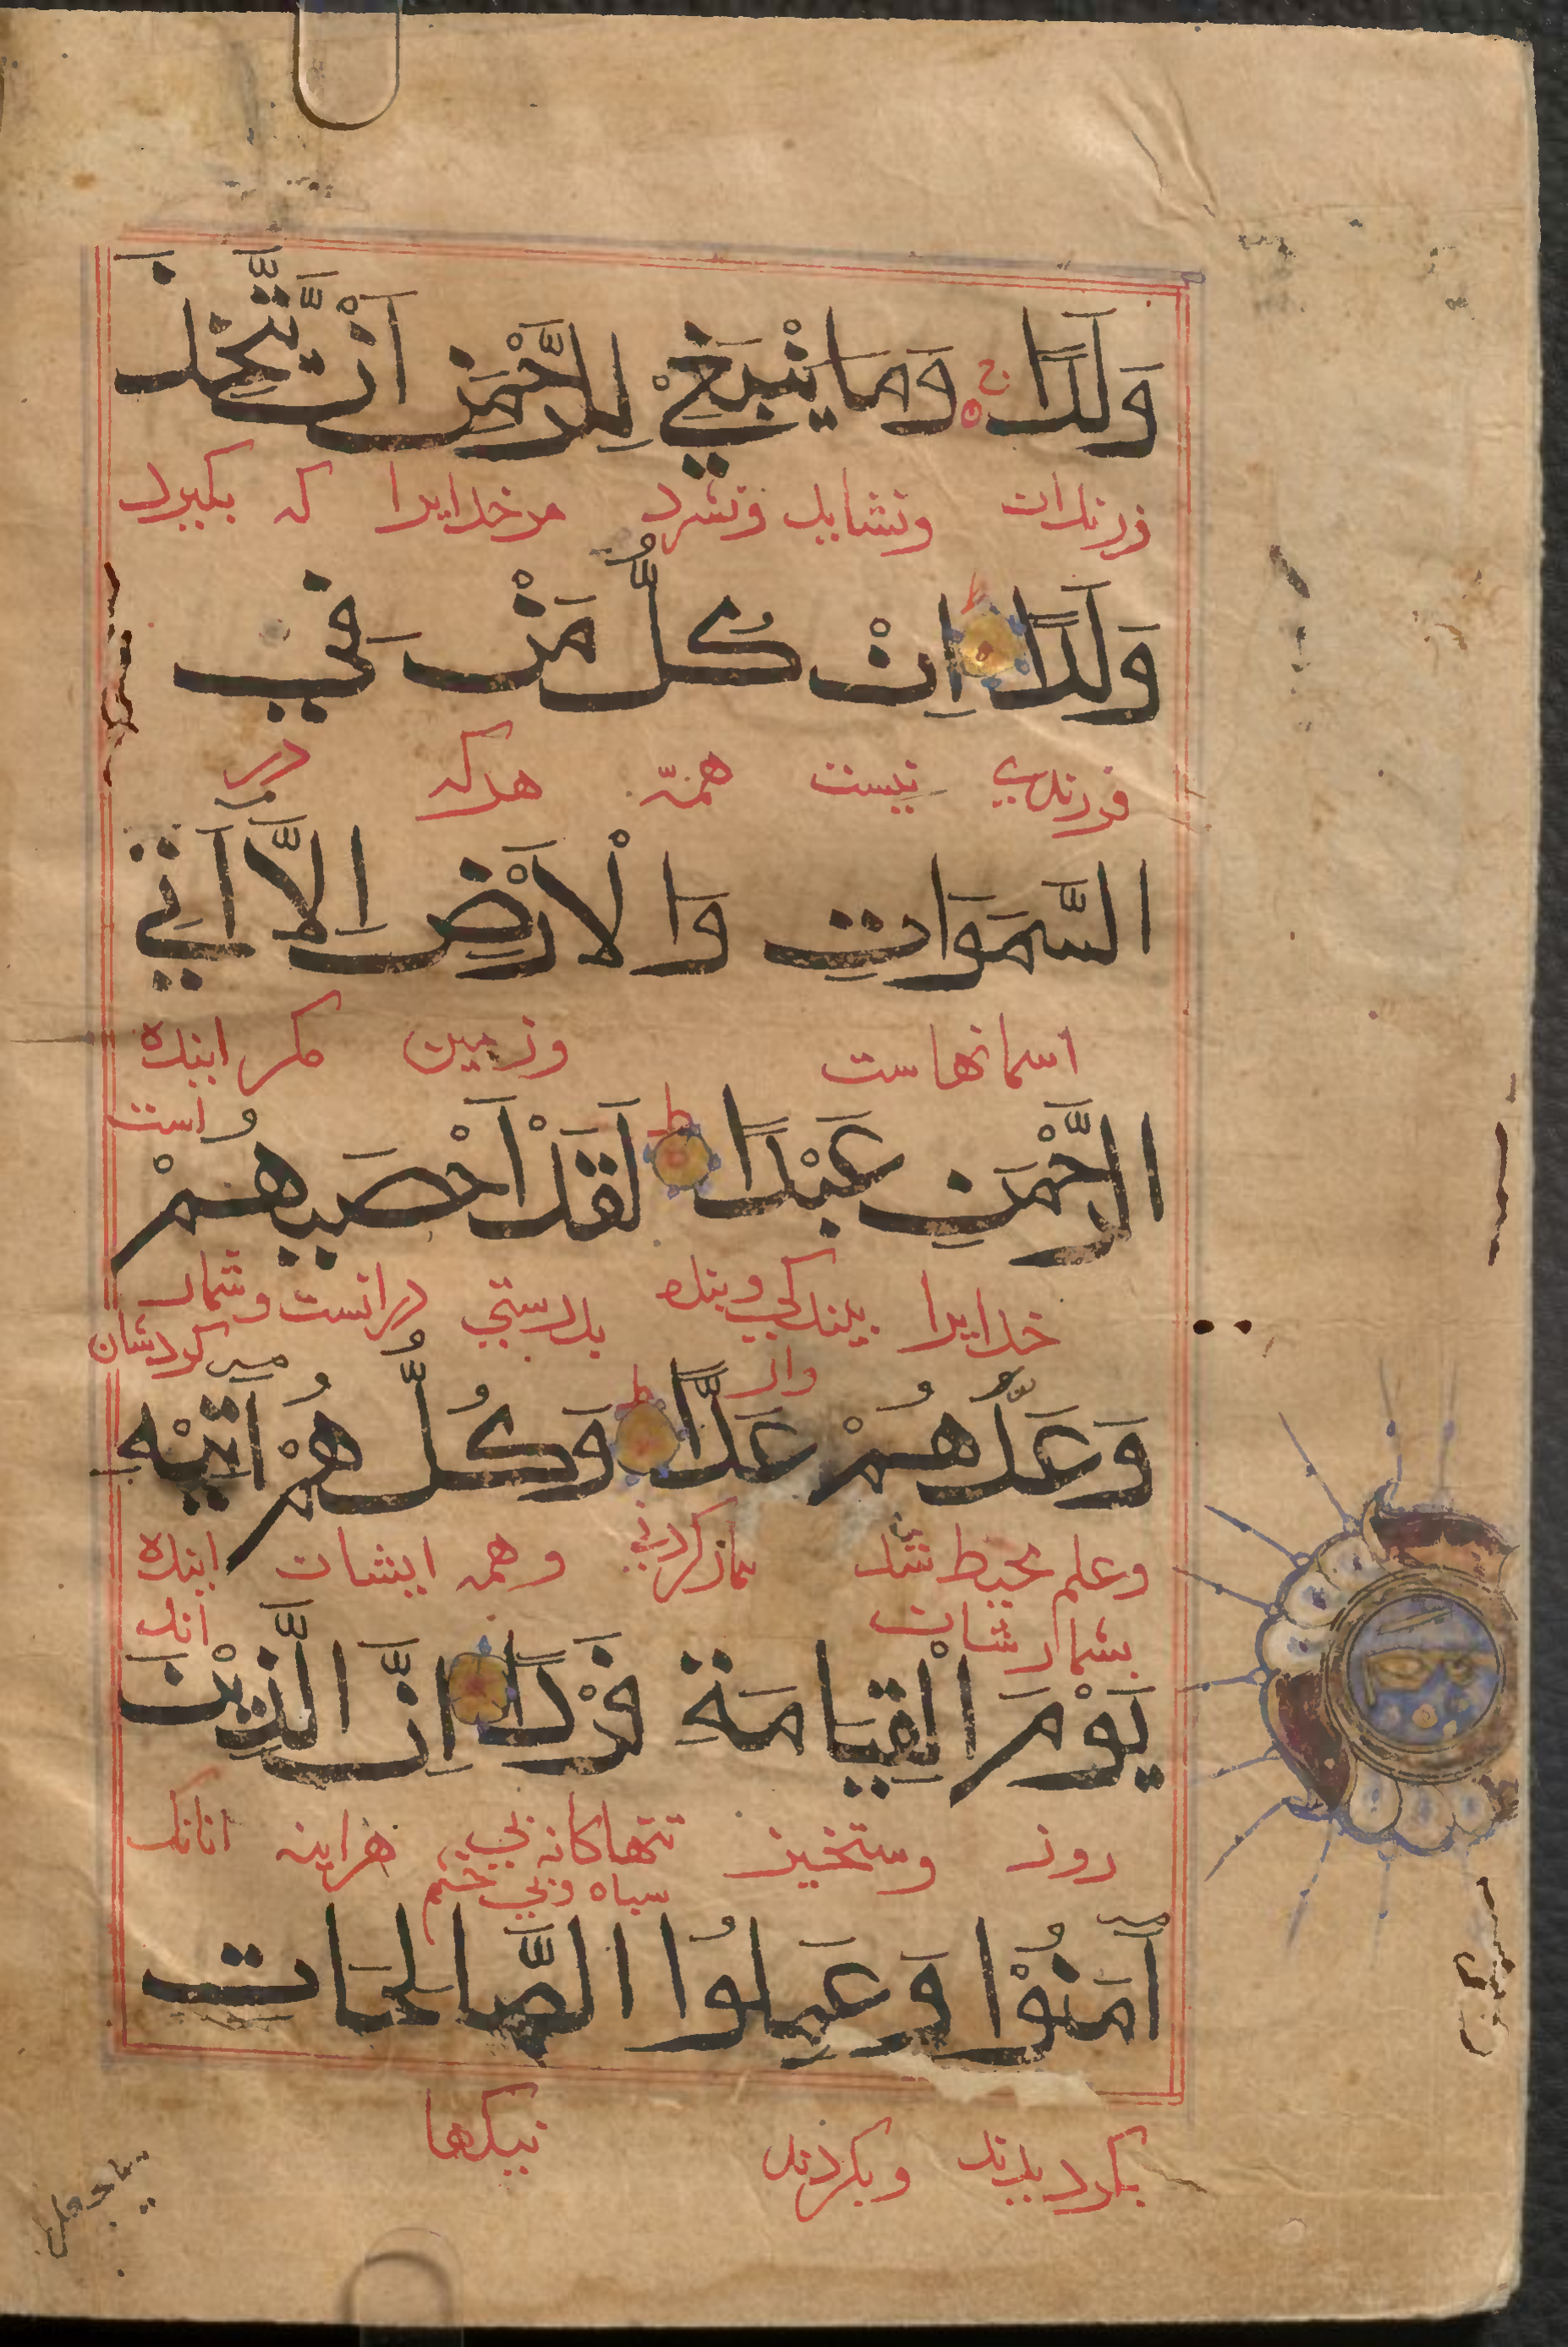 وَلَدًا ج وَمَا يَنْبَغِيْ لِلرَّحْمٰنِ اَنْ يَّتَّخِذَ
فرزندان ونشايد ونسزد مرخدايرا كه بكيرد
وَلَدًا ط اِنْ كُلُّ مَنْ فِي
فرزندي نيست همه هركه در
السَّمَوَاتِ وَالْاَرْضِ اِلَّا اٰتِي
اسمانهاست وزمين مكر اينده
است
الرَّحْمَنِ عَبْدًا ط لَقَدْ اَحْصَيهُمْ
خدايرا ببندكي وبنده بدرستي دانست وشمار
وار كردشان
وَعَدَّهُمْ عَدًّا ط وَكُلُّهُمْ اٰتِيْهِ
وعلم محيط شد شمار كردني وهمه ايشان اينده
بشمارشان اند
يَوْمَ الْقِيَامَةِ فَرْدًا اِنَّ الَّذِيْنَ
روز رستخيز تنهاكانه بي هراينه انانك
سباه وبي حشم
اٰمَنُوْا وَعَمِلُوا الصَّالِحَاتِ
بكرويدند وبكردند نيكيها
سيجعل